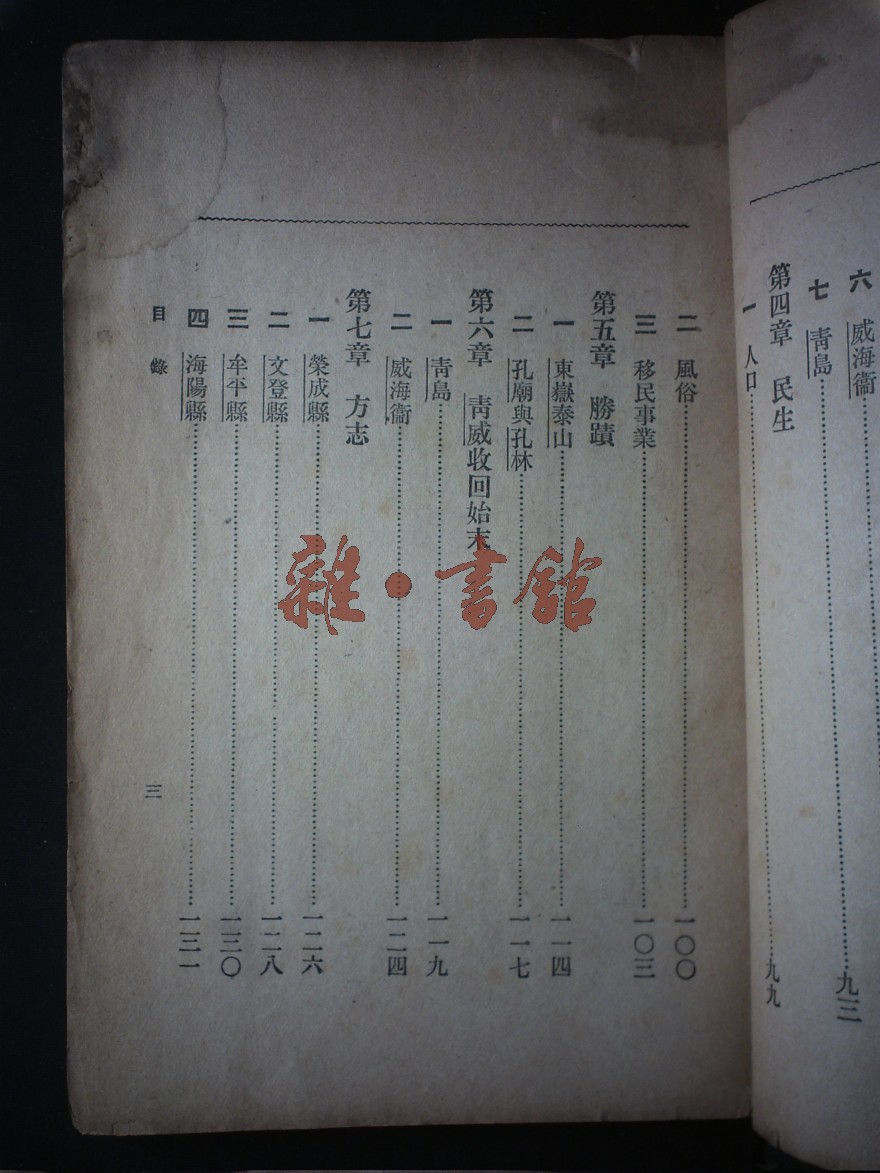 六　威海衞……九三
七　靑島
第四章　民生
一　人口……九九
二　風俗……一〇〇
三　移民事業……一〇三
第五章　勝蹟
一　東嶽泰山……一一四
二　孔廟與孔林……一一七
第六章　靑威收回始末
一　靑島……一一九
二　威海衞……一二四
第七章　方志
一　榮成縣……一二六
二　文登縣……一二八
三　牟平縣……一三〇
四　海陽縣……一三一
目錄
三
雜·書館